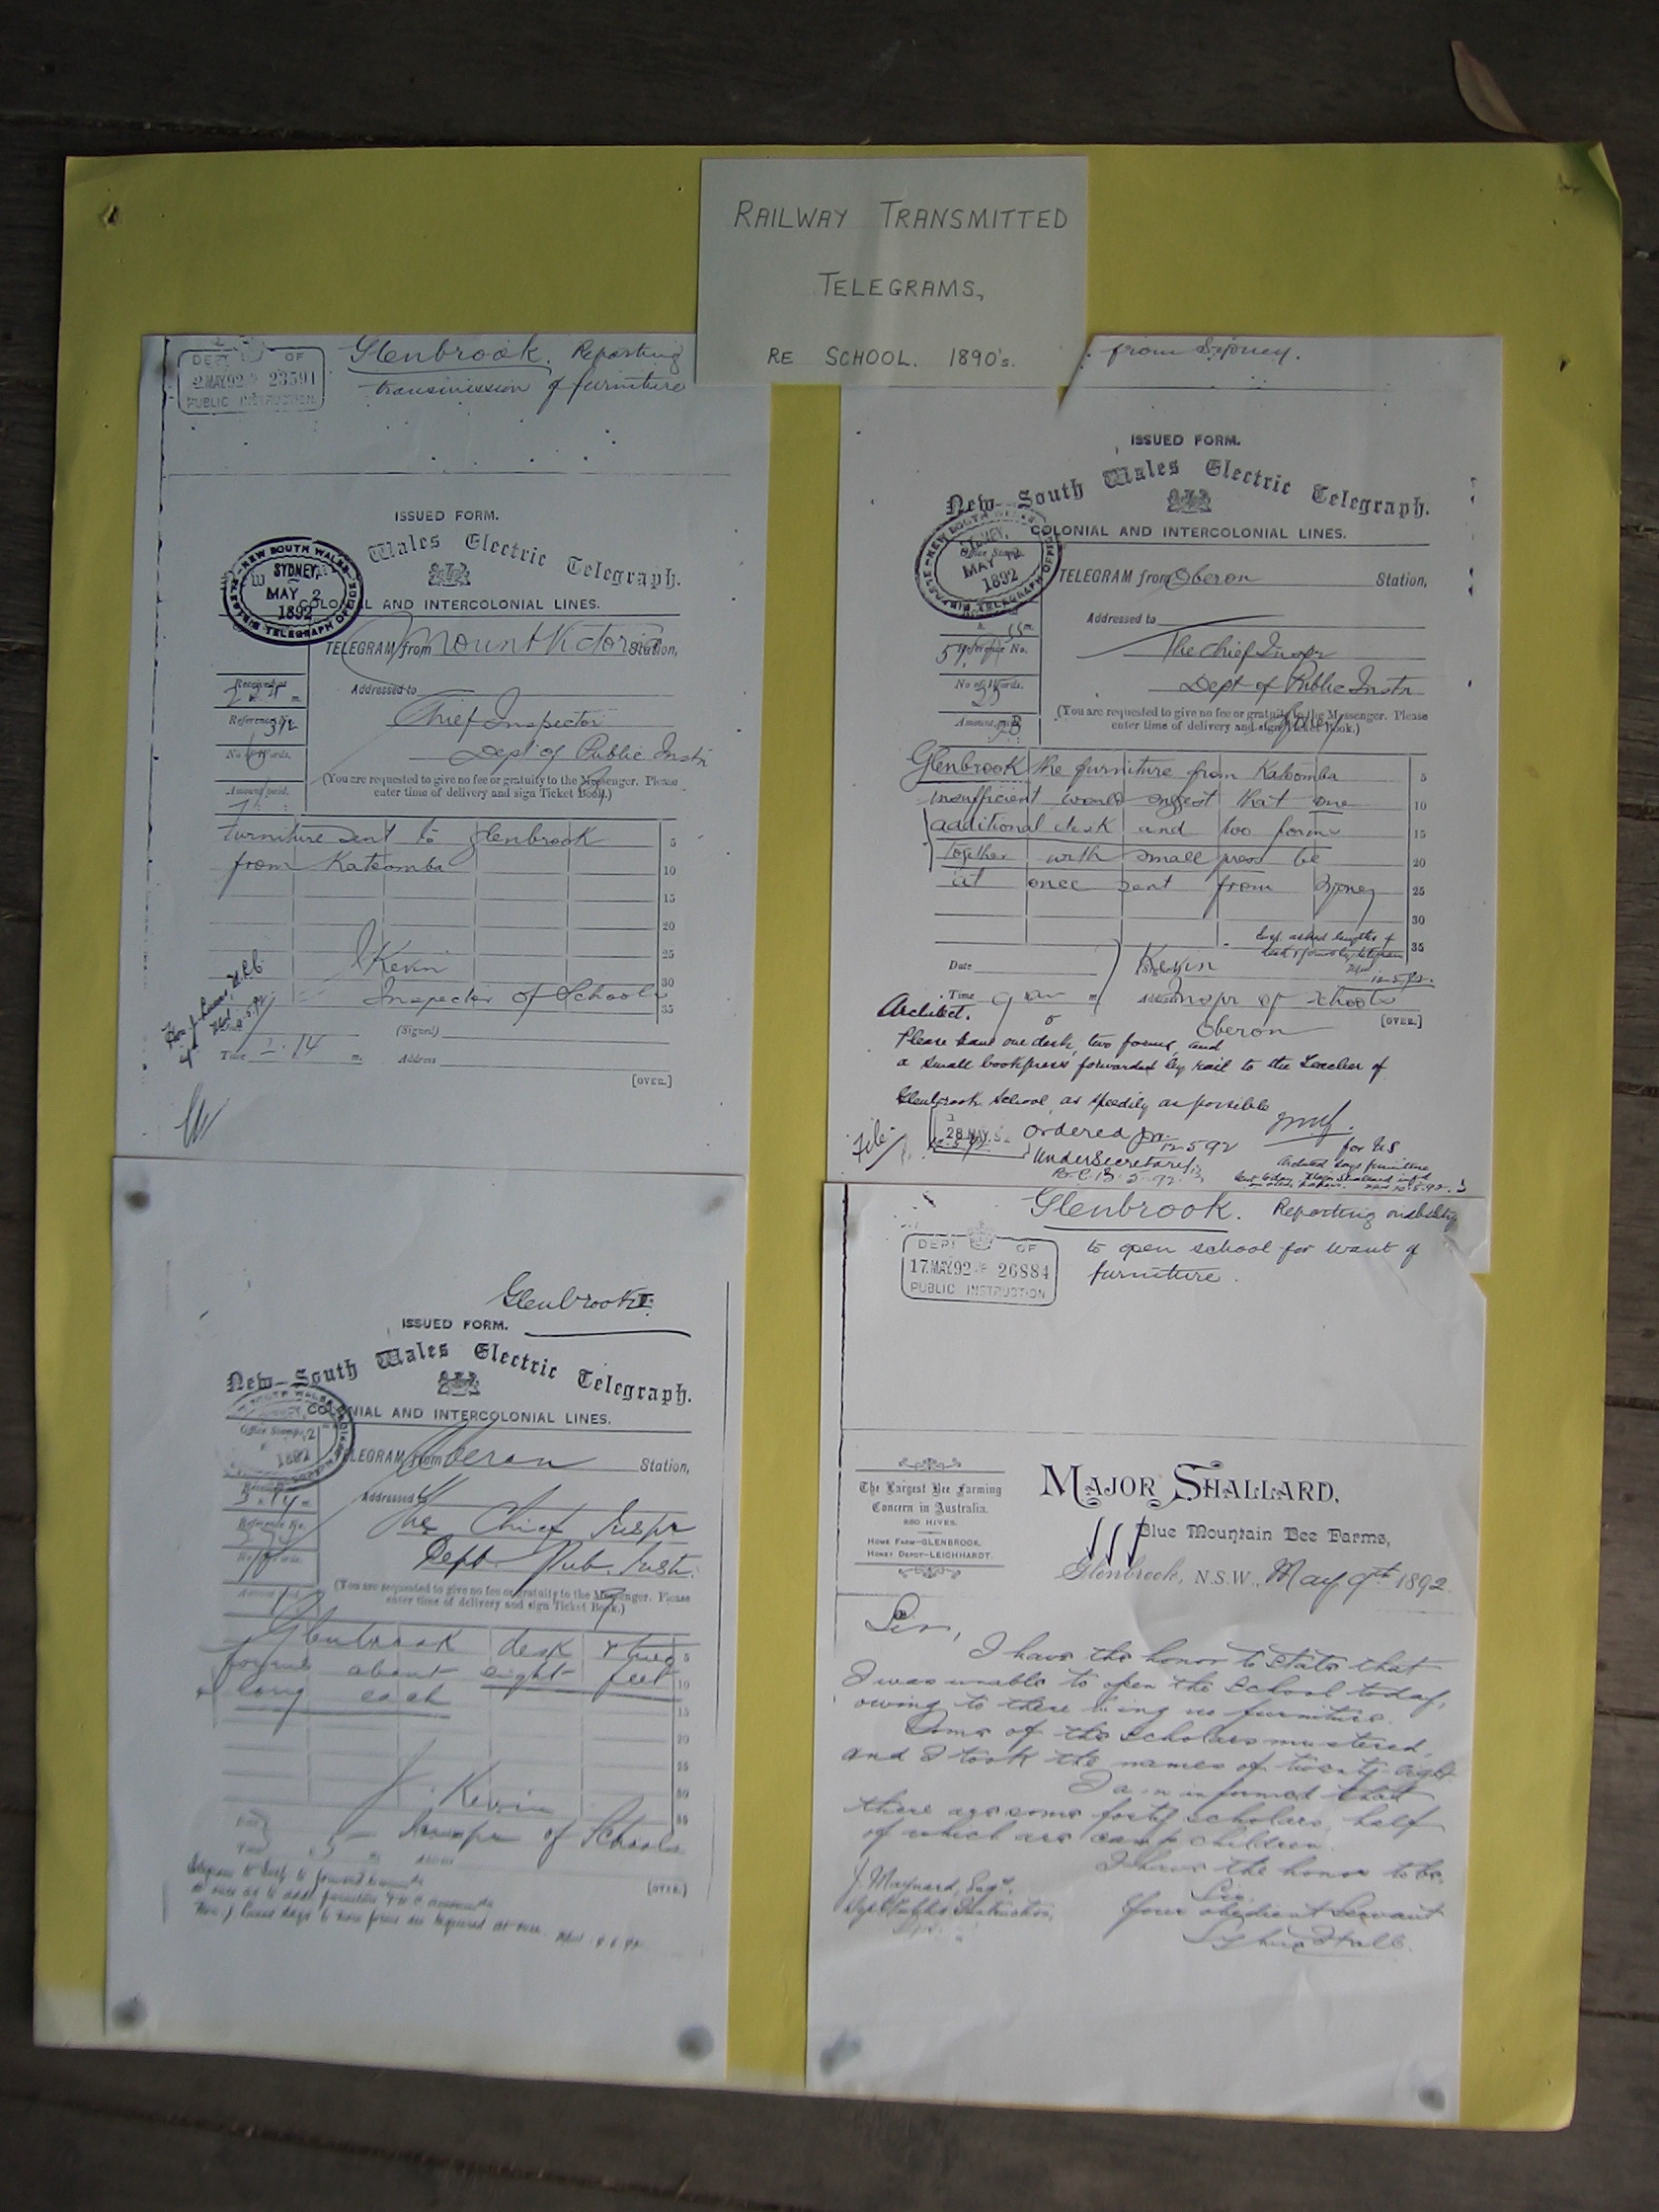 RAILWAY TRANSMITTED
TELEGRAMS,
RE SCHOOL. 1890's.
DEPT OF
2 MAY 92 23591
PUBLIC INSTRUCTION
Glenbrook. Reporting
transmission of furniture
ISSUED FORM.
Wales Electric Telegraph.
NEW SOUTH WALES
SYDNEY
MAY 2
1892
ELECTRIC TELEGRAPH OFFICE
COLONIAL AND INTERCOLONIAL LINES.
TELEGRAM from Mount Victoria Station,
Received at
Addressed to
Reference No.
Chief Inspector
No of Words.
Dept of Public Instn
(You are requested to give no fee or gratuity to the Messenger. Please
enter time of delivery and sign Ticket Book.)
Amount paid.
Furniture sent to Glenbrook 5
from Katoomba 10
15
20
25
Kevin
30
Inspector of Schools
35
(Signed)
Time 2.14 m. Address
[OVER.]
from Sydney.
ISSUED FORM.
New South Wales Electric Telegraph.
COLONIAL AND INTERCOLONIAL LINES.
MAY
1892
TELEGRAM from Oberon Station,
Addressed to
Reference No.
The Chief Inspr
No of Words.
Dept of Public Instn
Amount paid
Sydney
(You are requested to give no fee or gratuity to the Messenger. Please
enter time of delivery and sign Ticket Book.)
Glenbrook the furniture from Katoomba 5
insufficient would suggest that one 10
additional desk and two forms 15
together with small press be 20
at once sent from Sydney 25
30
35
Date
Kevin
12.5.92.
Time 9 m
Inspr of Schools
[OVER.]
Oberon
Architect.
Please have one desk, two forms, and
a small bookpress forwarded by rail to the Teacher of
Glenbrook School, as speedily as possible
28 MAY. 92
Ordered
12-5-92
for US
UnderSecretary
B.C. 13.5.92.
File
Glenbrook
ISSUED FORM.
New South Wales Electric Telegraph.
COLONIAL AND INTERCOLONIAL LINES.
Office Stamp
1892
TELEGRAM from Oberon Station,
Addressed to
The Chief Inspr
Reference No.
Dept. Pub. Instn.
(You are requested to give no fee or gratuity to the Messenger. Please
enter time of delivery and sign Ticket Book.)
Glenbrook desk & two 5
forms about eight feet 10
long each 15
20
25
J. Kevin 30
35
Inspr of Schools
[OVER.]
Glenbrook. Reporting inability
to open school for want of
furniture.
DEPT OF
17.MAY.92 26884
PUBLIC INSTRUCTION
The Largest Bee Farming
Concern in Australia.
HOME FARM—GLENBROOK.
HONEY DEPOT—LEICHHARDT.
MAJOR SHALLARD,
Blue Mountain Bee Farms,
Glenbrook, N.S.W., May 9th 1892
Sir,
I have the honor to state that
I was unable to open the School today,
owing to there being no furniture.
Some of the scholars mustered,
and I took the names of twenty-eight
I am informed that
there are some forty scholars, half
of which are camp children.
I have the honor to be,
Sir,
J. Maynard, Esqr.
Your obedient Servant